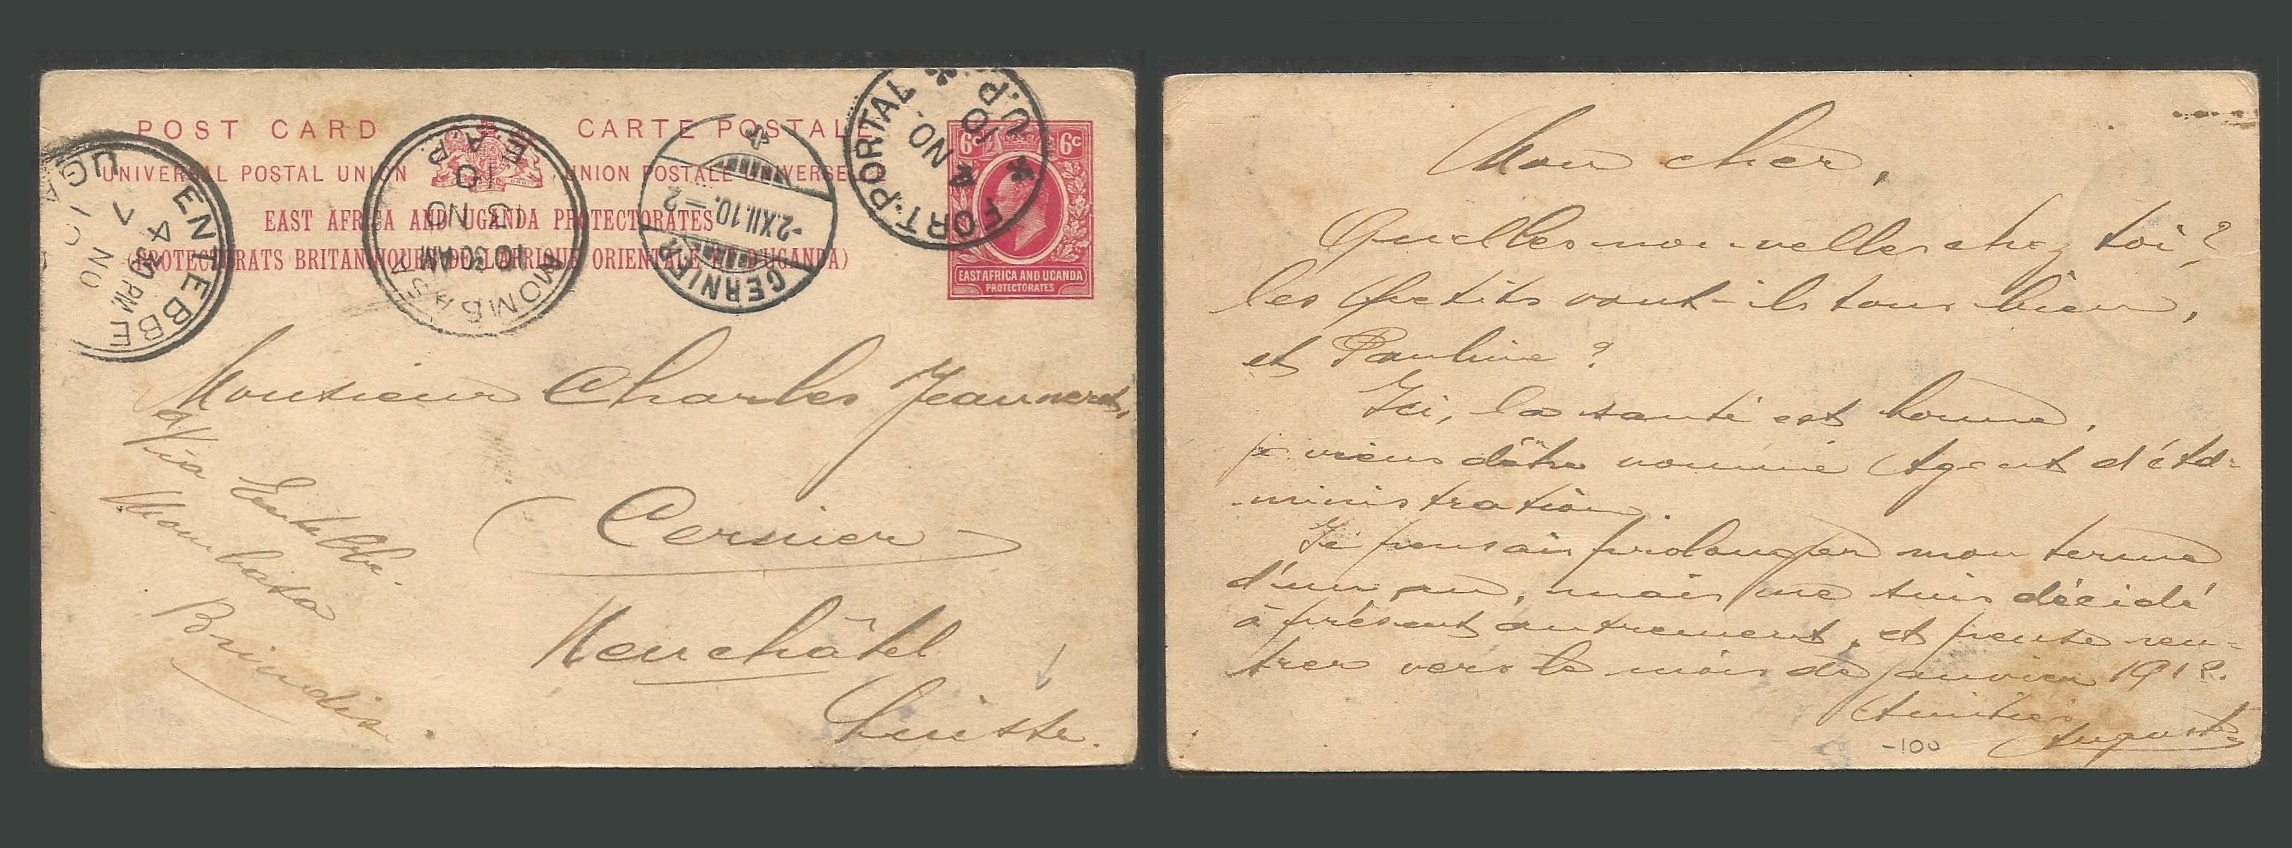 POST CARD CARTE POSTALE
UNIVERSAL POSTAL UNION UNION POSTALE UNIVERSELLE
EAST AFRICA AND UGANDA PROTECTORATES
(PROTECTORATS BRITANNIQUES DE L'AFRIQUE ORIENTALE ET L'UGANDA)
6c 6c
EAST AFRICA AND UGANDA
PROTECTORATES
FORT-PORTAL U.P.
4 NO
10
ENTEBBE
4 30 PM
7 NO
10
MOMBASA
10 30 AM
13 NO
10
CERNIER
-2.XII.10.-2
Monsieur Charles Jeanneret,
Cernier
Neuchâtel
Suisse.
Via Entebbe.
Mombasa
Brindisi.
Mon cher,
Quelles nouvelles chez toi?
les petits vont-ils tous bien,
et Pauline?
Ici, la santé est bonne,
je viens d'être nommé Agent d'Ad-
ministration.
Je pensais prolonger mon terme
d'un peu, mais me suis décidé
à présent autrement, et pense ren-
trer vers le mois de janvier 1912.
Amitiés
Auguste
-100